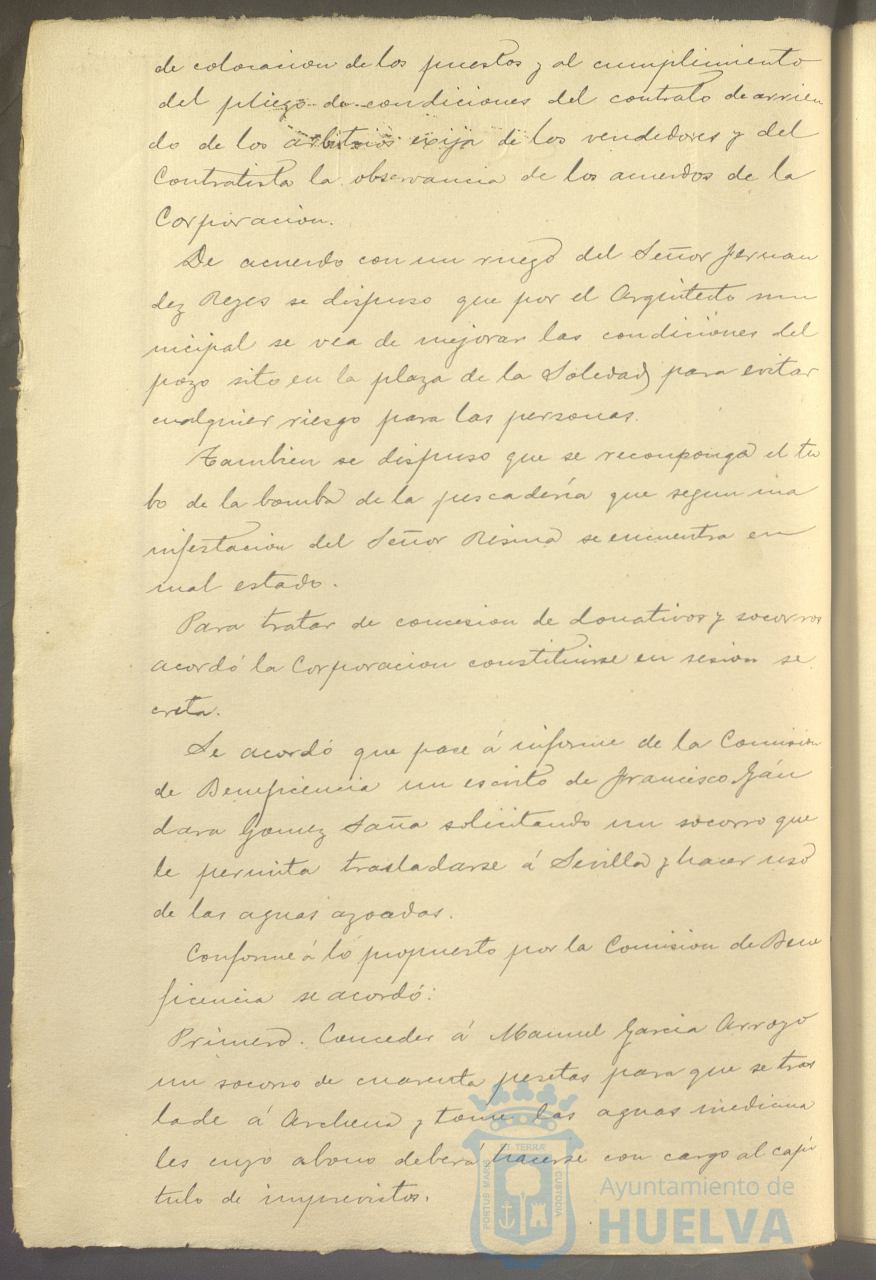 de colocacion de los puestos y al cumplimiento
del pliego de condiciones del contrato de arrien
do de los arbitrios exija de los vendedores y del
Contratista la observancia de los acuerdos de la
Corporacion.
De acuerdo con un ruego del Señor Fernan
dez Reyes se dispuso que por el Arquitecto mu
nicipal se vea de mejorar las condiciones del
pozo sito en la plaza de la Soledad para evitar
cualquier riesgo para las personas.
Tambien se dispuso que se recomponga el tu
bo de la bomba de la pescadería que segun ma
nifestacion del Señor Resina se encuentra en
mal estado.
Para tratar de concesion de donativos y socorros
acordó la Corporacion constituirse en sesion se
creta.
Se acordó que pase á informe de la Comision
de Beneficencia un escrito de Francisco Gán
dara Gomez Saña solicitando un socorro que
le permita trasladarse á Sevilla y hacer uso
de las aguas azoadas.
Conforme á lo propuesto por la Comision de Bene
ficencia se acordó:
Primero. Conceder á Manuel Garcia Arroyo
un socorro de cuarenta pesetas para que se tras
lade á Archena y tome las aguas medicina
les cuyo abono deberá hacerse con cargo al capi
tulo de imprevistos.
PORTUS MARIS ET TERRÆ CUSTODIA
Ayuntamiento de
HUELVA